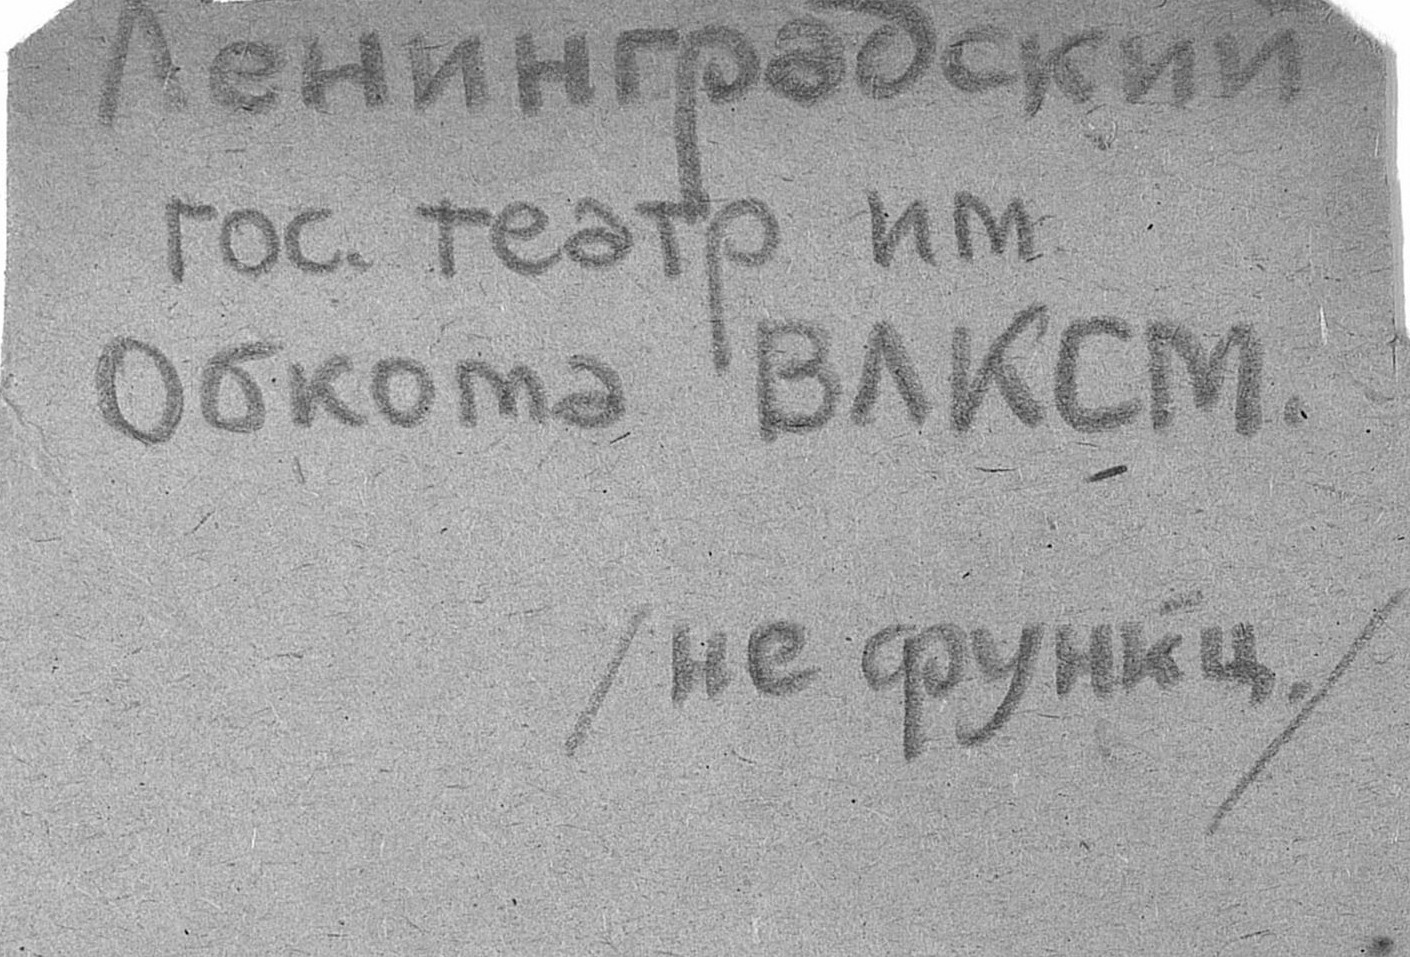 Ленинградский
гос. театр им
Обкома ВЛКСМ.
/не функц./